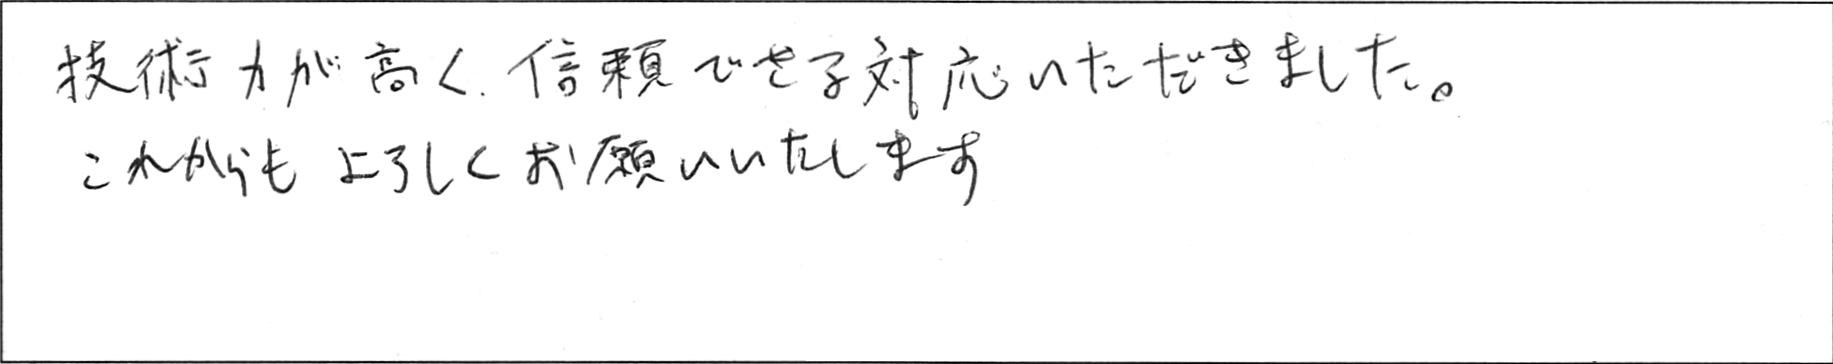 技術力が高く、信頼できる対応いただきました。
これからもよろしくお願いいたします